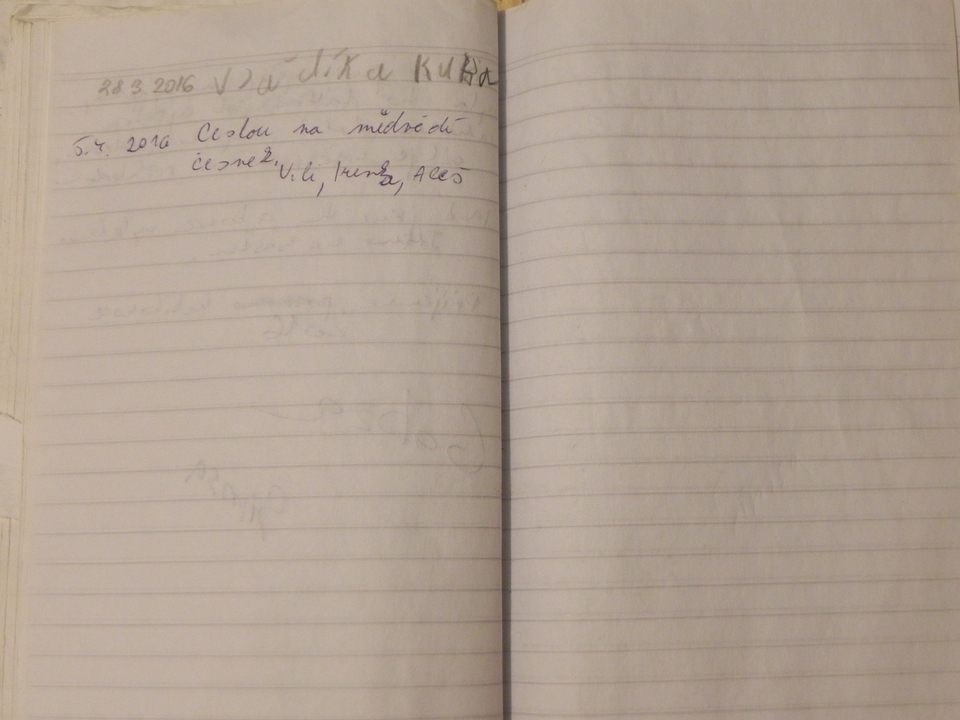 28 3. 2016 Vláďíka KUBA
5.4. 2016 Cestou na mědvědí
česnek.
Vili, Irenka, Aleš